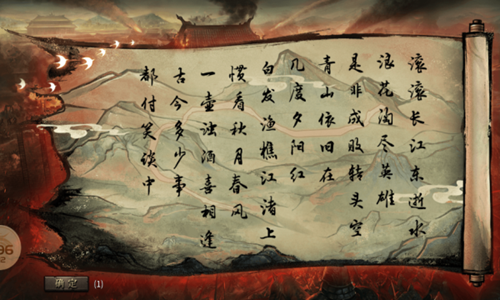 滚滚长江东逝水
浪花淘尽英雄
是非成败转头空
青山依旧在
几度夕阳红
白发渔樵江渚上
惯看秋月春风
一壶浊酒喜相逢
古今多少事
都付笑谈中
确定 (1)